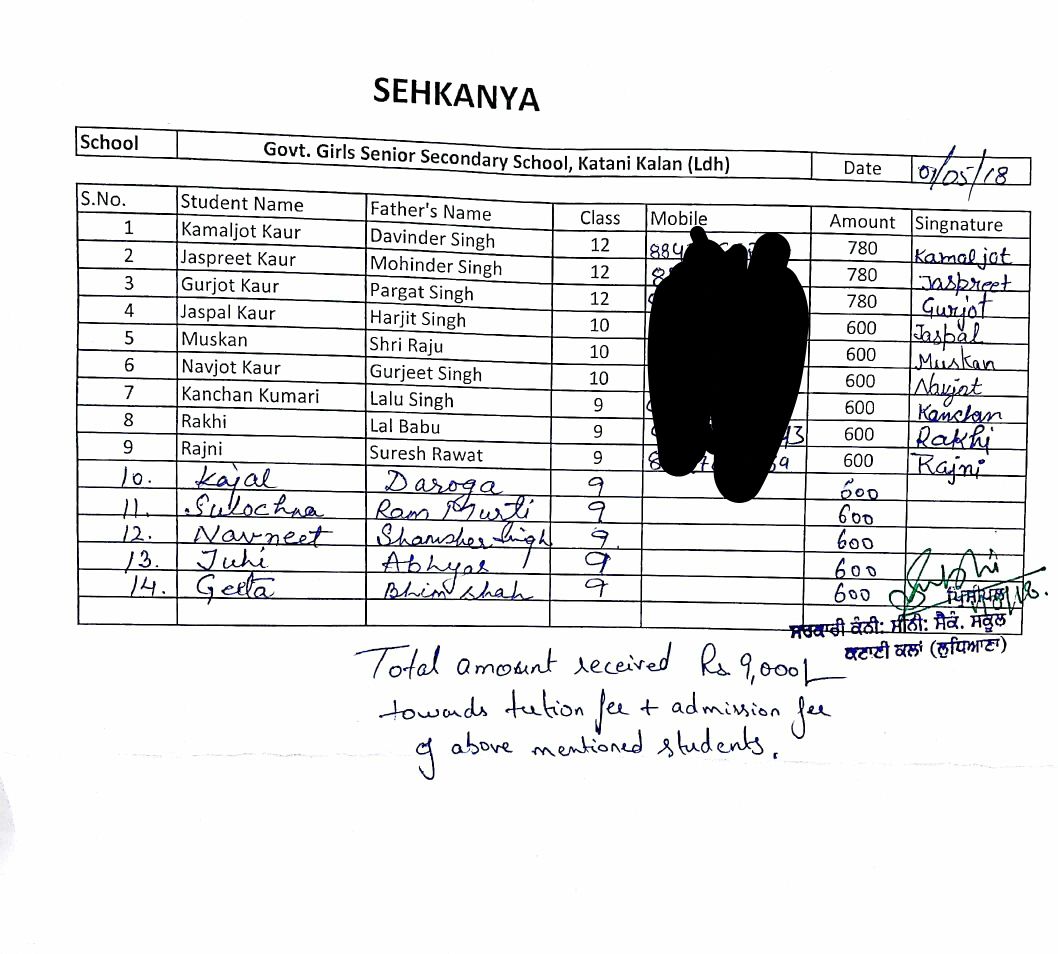 SEHKANYA
School Govt. Girls Senior Secondary School, Katani Kalan (Ldh) Date 01/05/18
S.No. Student Name Father's Name Class Mobile Amount Singnature
1 Kamaljot Kaur Davinder Singh 12 780 Kamaljot
2 Jaspreet Kaur Mohinder Singh 12 780 Jaspreet
3 Gurjot Kaur Pargat Singh 12 780 Gurjot
4 Jaspal Kaur Harjit Singh 10 600 Jaspal
5 Muskan Shri Raju 10 600 Muskan
6 Navjot Kaur Gurjeet Singh 10 600 Navjot
7 Kanchan Kumari Lalu Singh 9 600 Kanchan
8 Rakhi Lal Babu 9 600 Rakhi
9 Rajni Suresh Rawat 9 600 Rajni
10. Kajal Daroga 9 600
11. Sulochna Ram Murti 9 600
12. Navneet Shamsher Singh 9 600
13. Juhi Abhyas 9 600
14. Geeta Bhim shah 9 600
ਪ੍ਰਿੰਸੀਪਲ
ਸਰਕਾਰੀ ਕੰਨੀ: ਸੀਨੀ: ਸੈਕੰ. ਸਕੂਲ
ਕਟਾਣੀ ਕਲਾਂ (ਲੁਧਿਆਣਾ)
Total amount received Rs 9,000/-
towards tution fee + admission fee
of above mentioned students.